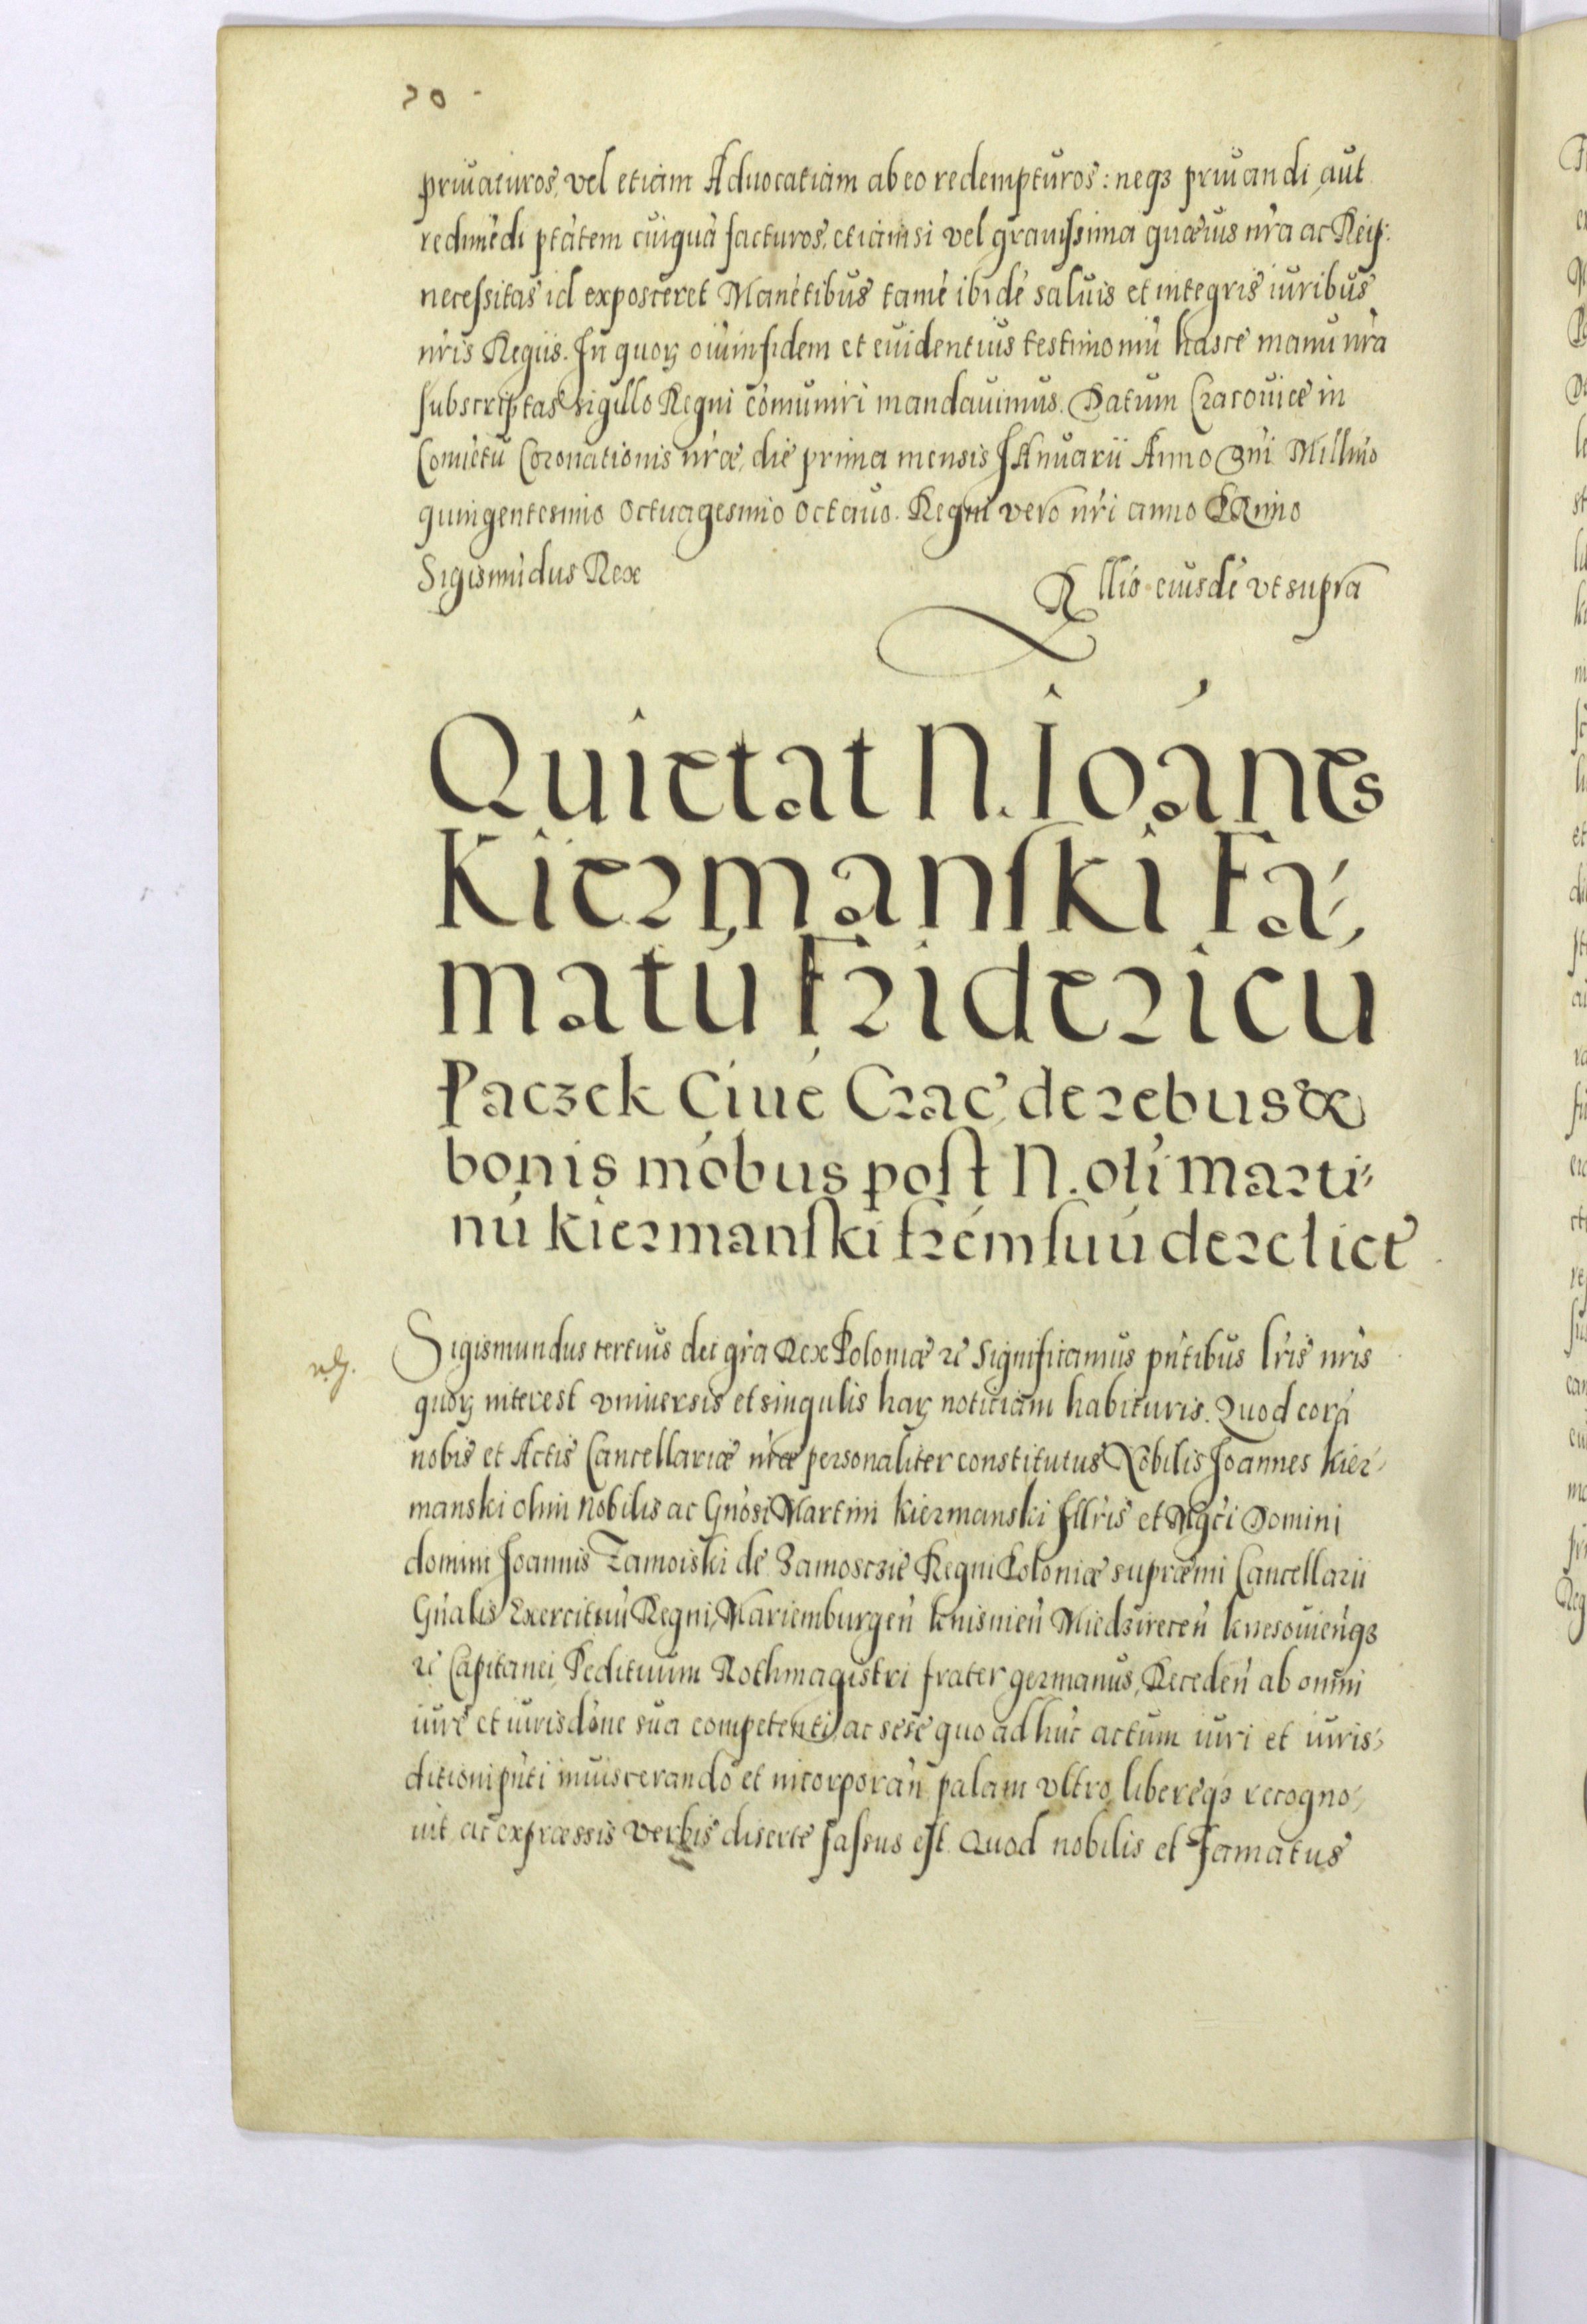 20
priuaturos, vel etiam Aduocatiam ab eo redempturos: neqз priuandi aut
redimēdi ptātem cuiquā facturos, etiamsi vel grauissima quæuis nr̄a ac Reip:
necessitas id exposceret Manētibus tamē ibidē saluis et integris iuribus
nr̄is Regiis. In quoꝝ oīum fidem et euidentius testimoniū hasce manu nr̄a
subscriptas sigillo Regni cōmuniri mandauimus. Datum Cracouiæ in
Conuētu Coronationis nr̄æ, die prima mensis IAnuarii Anno Dn̄i Millm̄o
quingentesimo octuagesimo octauo. Regni vero nr̄i anno PRimo
Sigismūdus Rex
Rllio eiusdē vt supra
Quietat N. Ioānes
Kiermanſki Fa-
matū Fridericu
Paczek Ciuē Crac̄ de rebus &
bonis mōbus poſt N. olī Marti-
nū Kiermanſki fr̄em ſuū derelict̄
Sigismundus tertius dei gr̄a Rex Poloniæ ꝛc̄ Significamus pn̄tibus lr̄is nr̄is
quoꝝ interest vniuersis et singulis haꝝ noticiam habituris. Quod corā
nobis et Actis Cancellariæ nr̄æ personaliter constitutus Nobilis Joannes Kier-
manski olim Nobilis ac Gn̄osi Martini Kiermanski Illr̄is et Mgc̄i Domini
domini Joannis Zamoiski de Zamosczie Regni Poloniæ supræmi Cancellarii
Gn̄alis Exercituū Regni, Mariemburgen̄ knisnien̄ Miedzirecen̄ knesouien̄qз
ꝛc̄ Capitanei Pedituum Rothmagistri frater germanus, Receden̄ ab omni
iure et iurisdōne sua competenti, ac sese quo ad hūc actum iuri et iuris-
ditioni pn̄ti inuiscerando et incorporan̄ palam vltro, libereqз recogno-
uit, ac expræssis verbis diserte faſsus eſt. Quod nobilis et Famatus